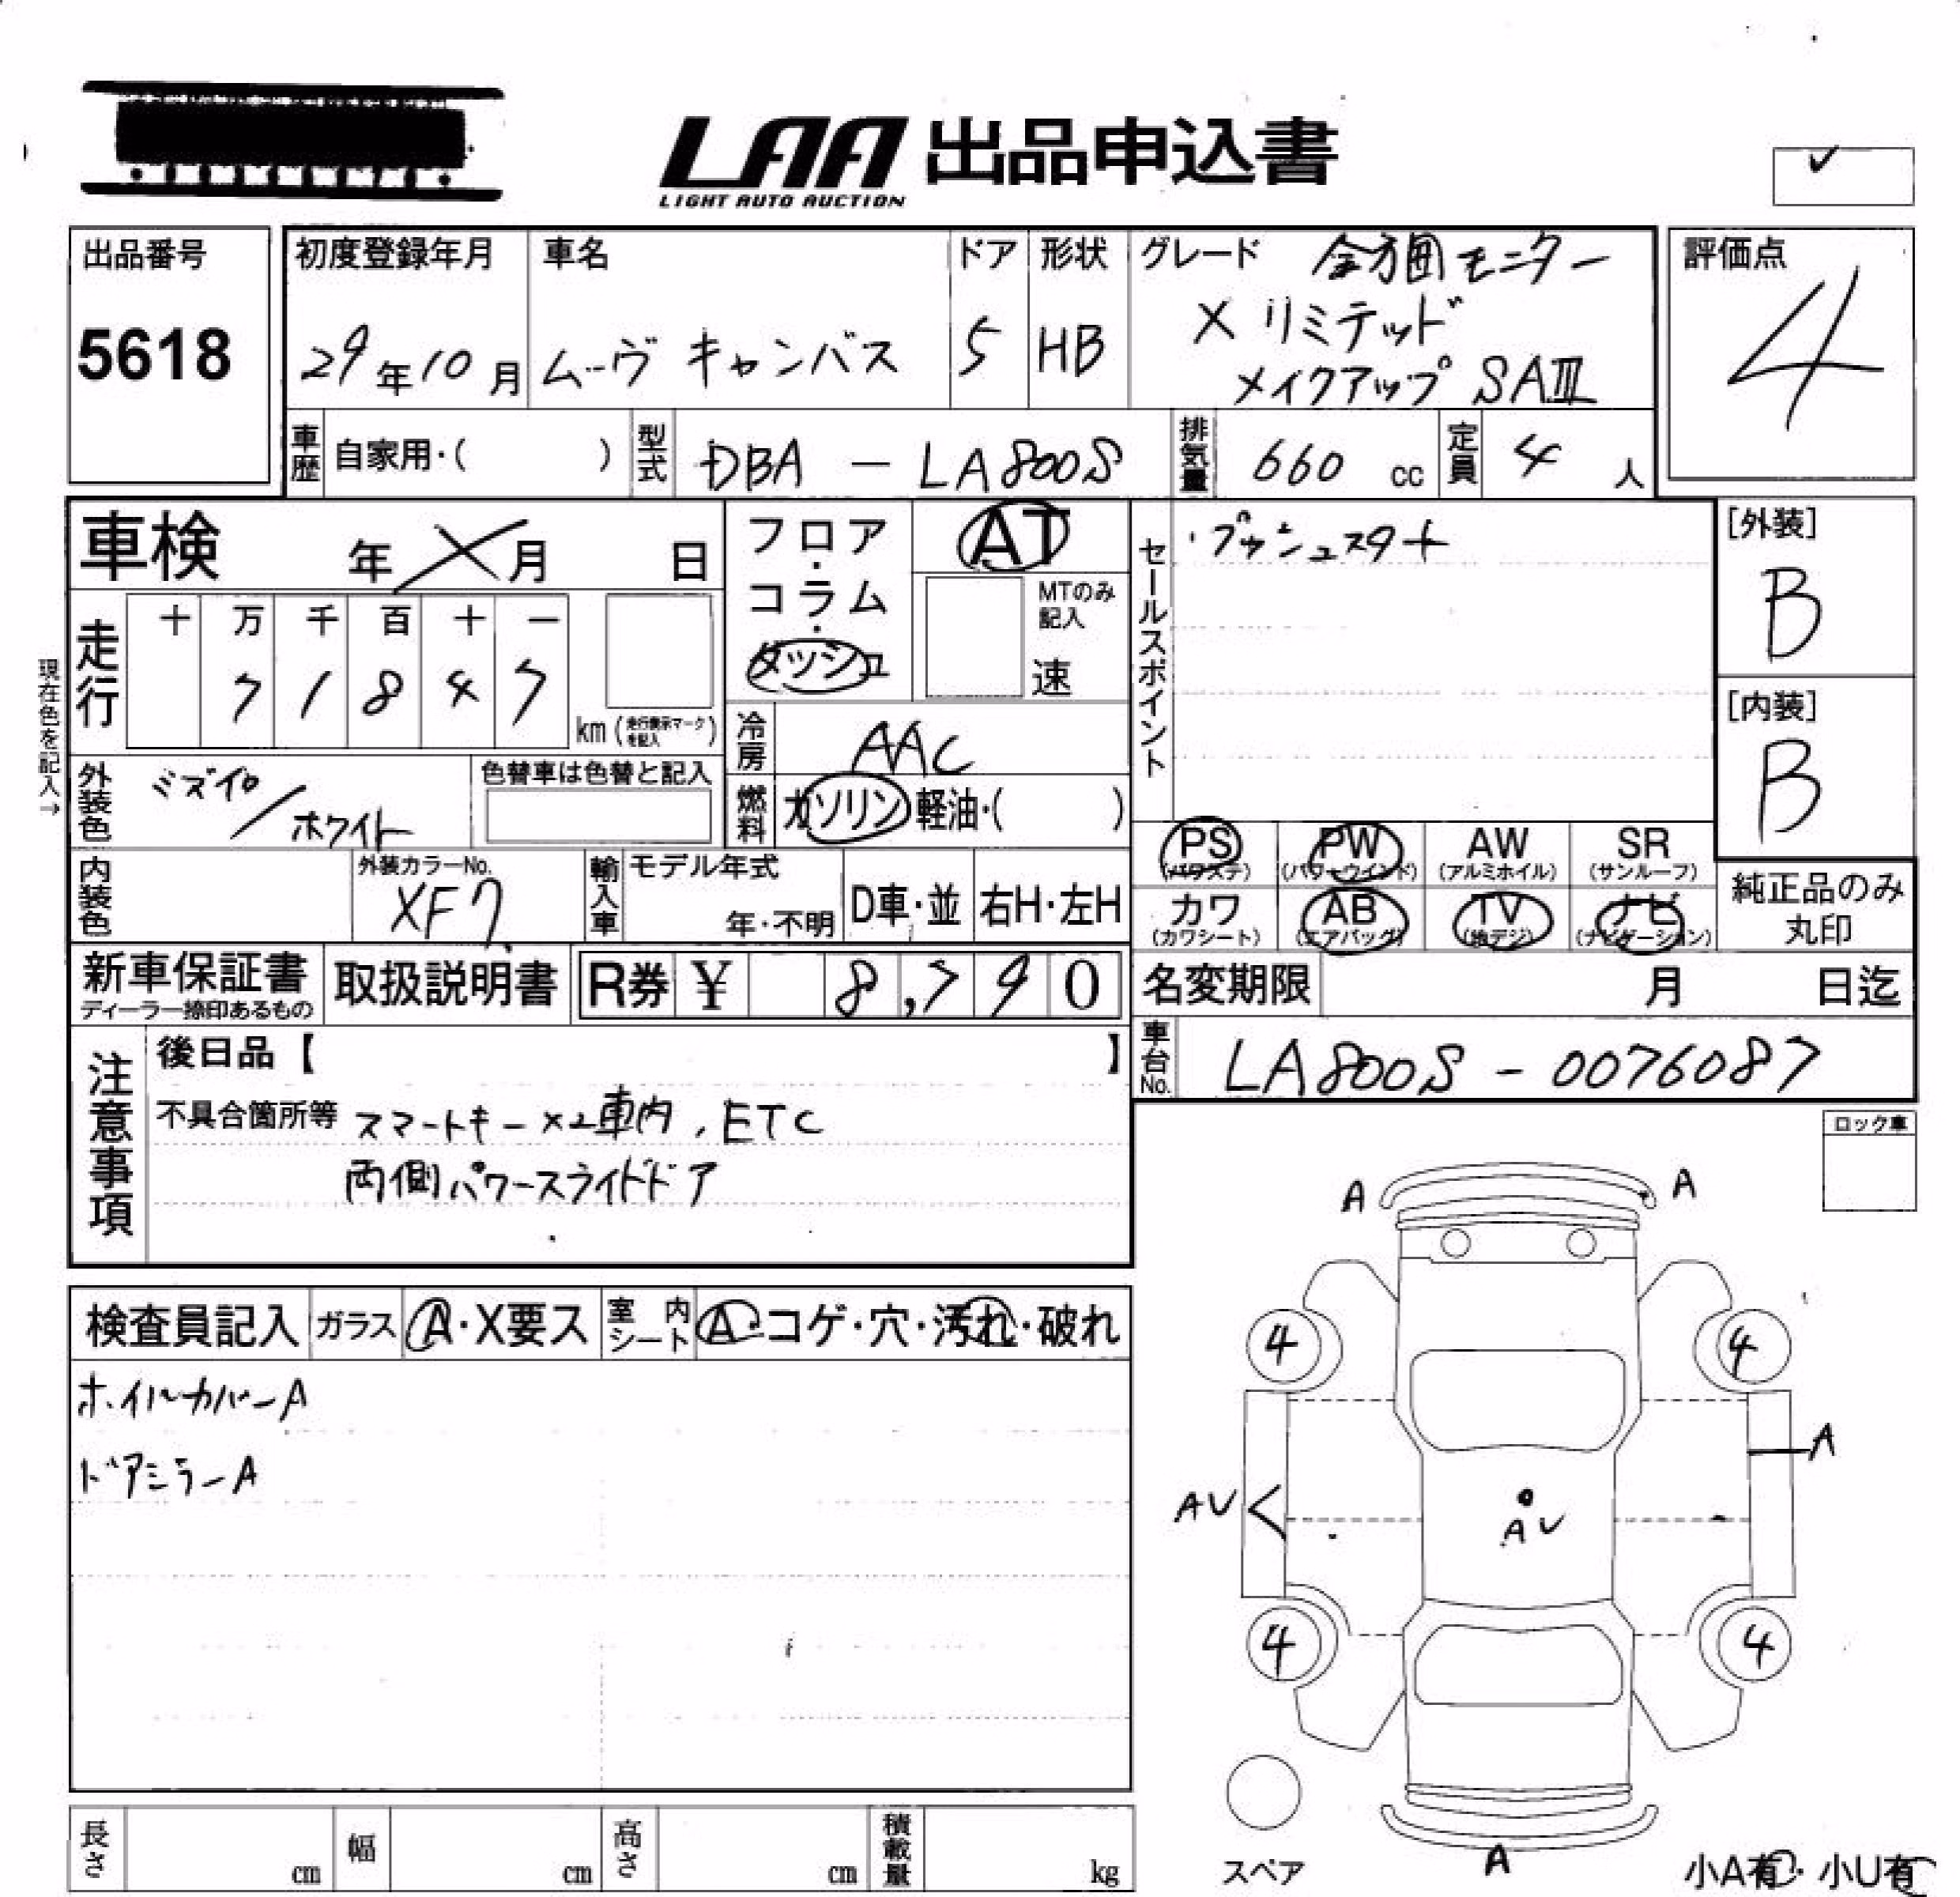 LAA 出品申込書
LIGHT AUTO AUCTION
✓
出品番号
5618
初度登録年月
29年10月
車名
ムーヴ キャンバス
ドア
5
形状
HB
グレード 全方囲モニター
X リミテッド
メイクアップ SAⅢ
評価点
4
車歴 自家用・( )
型式 DBA - LA800S
排気量 660 cc
定員 4 人
車検 年 月 日
現在色を記入→
走行
十 万 千 百 十 一
7 1 8 4 7
km (走行表示マークを記入)
外装色 ミズイロ/ホワイト
色替車は色替と記入
内装色
外装カラーNo.
XF7
フロア・コラム・ダッシュ
AT
MTのみ記入
速
冷房 AAC
燃料 ガソリン 軽油・( )
輸入車
モデル年式
年・不明
D車・並
右H・左H
セールスポイント
・プッシュスタート
[外装]
B
[内装]
B
PS (パワステ)
PW (パワーウインド)
AW (アルミホイル)
SR (サンルーフ)
カワ (カワシート)
AB (エアバッグ)
TV (地デジ)
ナビ (ナビゲーション)
純正品のみ
丸印
新車保証書
ディーラー捺印あるもの
取扱説明書
R券 ¥ 8,790
名変期限 月 日迄
車台No. LA800S - 0076087
注意事項
後日品【 】
不具合箇所等 スマートキー×2車内, ETC
両側パワースライドドア
ロック車
検査員記入
ガラス A・X要ス
室内シート A・コゲ・穴・汚れ・破れ
ホイルカバーA
ドアミラーA
A A
4 4
A
AV
AV
4 4
スペア
A
小A有・小U有
長さ cm
幅 cm
高さ cm
積載量 kg